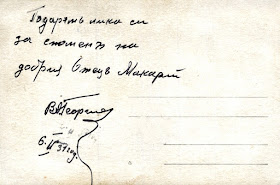 Подарявъ лика си
за споменъ на
добрия Отецъ Макарий
В. Георгиев
6. II 37 год.